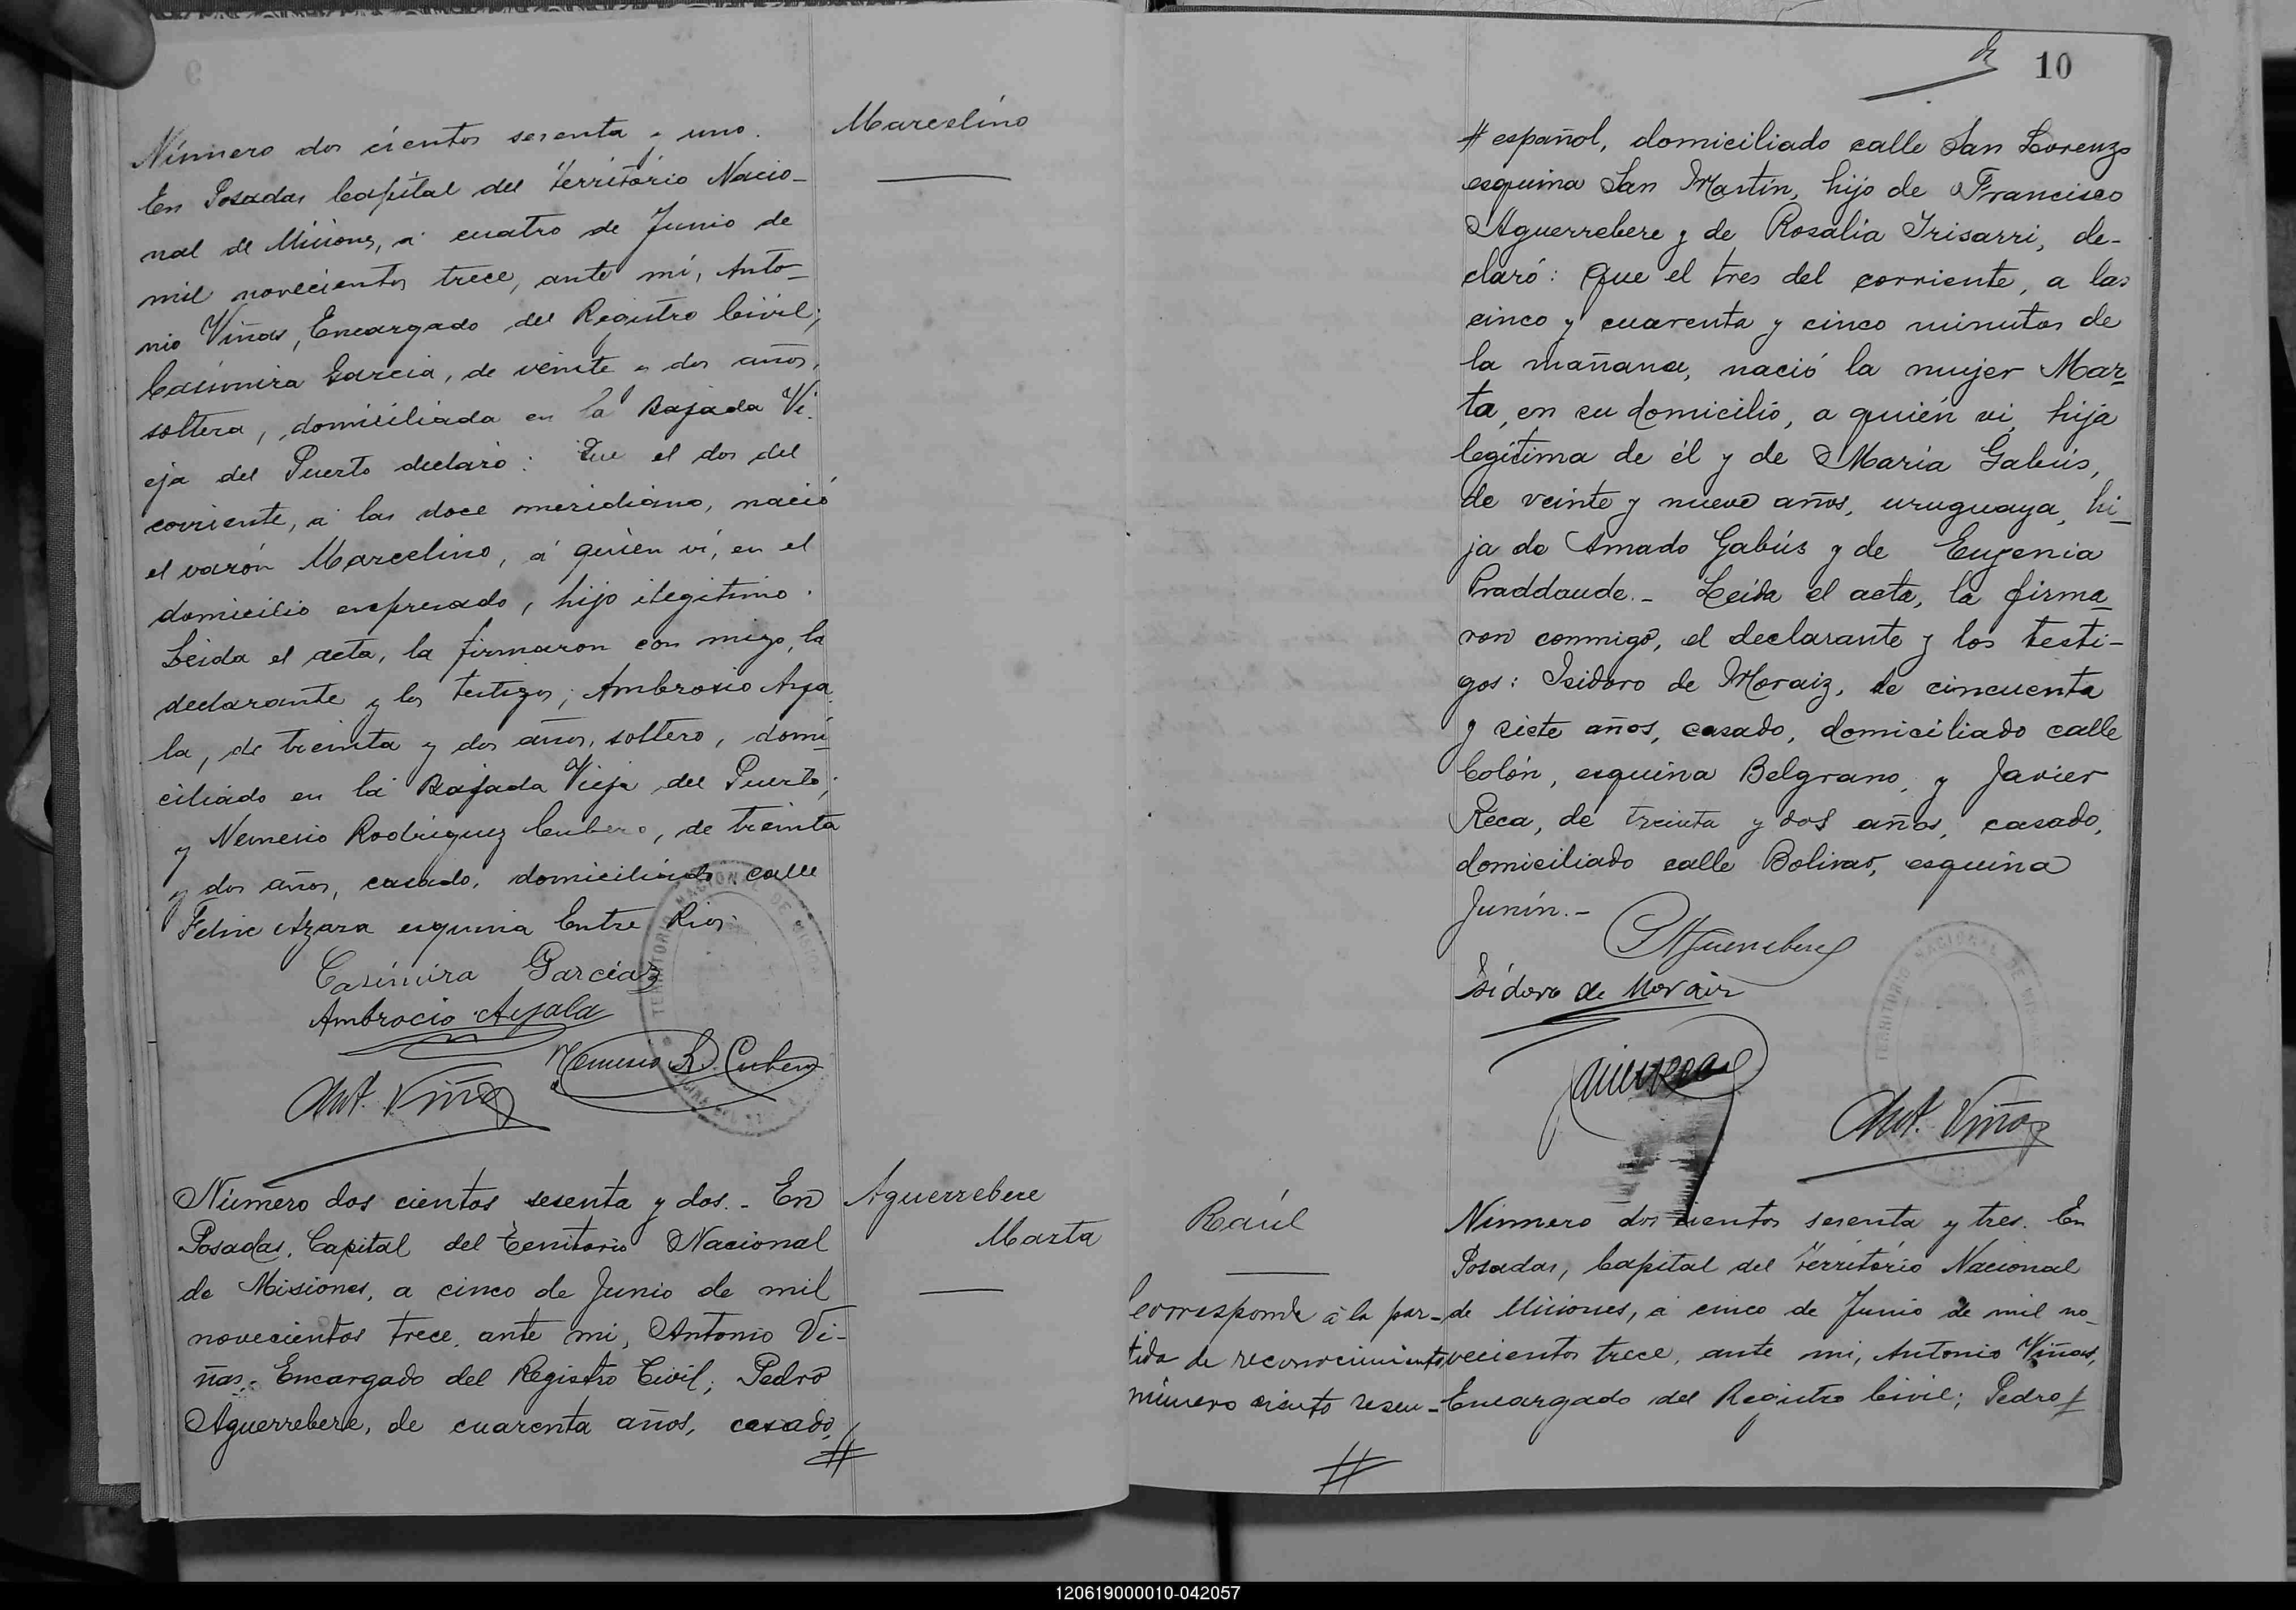 Número dos cientos sesenta y uno.
En Posadas Capital del Territorio Nacio-
nal de Misiones, á cuatro de Junio de
mil novecientos trece, ante mí, Anto-
nio Viñas, Encargado del Registro Civil;
Casimira Garcia, de veinte y dos años,
soltera, domiciliada en la Bajada Vi-
eja del Puerto declaró: Que el dos del
corriente, á las doce meridiano, nació
el varón Marcelino, á quien ví, en el
domicilio expresado, hijo ilegitimo.
Leida el acta, la firmaron con migo, la
declarante y los testigos; Ambrosio Aya
la, de treinta y dos años, soltero, domi-
ciliado en la Bajada Vieja del Puerto;
y Nemesio Rodriguez Cubero, de treinta
y dos años, casado, domiciliado calle
Felix Azara esquina Entre Rios.
Casimira Garcia
Ambrocio Ayala
Nemesio R. Cubero
Ant. Viñas
Marcelino
TERRITORIO NACIONAL DE MISIONES
Número dos cientos sesenta y dos.- En
Posadas, Capital del Territorio Nacional
de Misiones, a cinco de Junio de mil
novecientos trece, ante mi, Antonio Vi-
ñas, Encargado del Registro Civil; Pedro
Aguerrebere, de cuarenta años, casado,
#
Aguerrebere
Marta
10
# español, domiciliado calle San Lorenzo
esquina San Martín, hijo de Francisco
Aguerrebere y de Rosalía Irisarri, de-
claró: Que el tres del corriente, a las
cinco y cuarenta y cinco minutos de
la mañana, nació la mujer Mar-
ta, en su domicilio, a quién vi, hija
legítima de él y de María Gabús,
de veinte y nueve años, uruguaya, hi-
ja de Amado Gabús y de Eugenia
Praddaude.- Leída el acta, la firma-
ron conmigo, el declarante y los testi-
gos: Isidoro de Moraiz, de cincuenta
y siete años, casado, domiciliado calle
Colón, esquina Belgrano, y Javier
Reca, de treinta y dos años, casado,
domiciliado calle Bolivar, esquina
Junín.-
PAguerrebere
Isidoro de Moraiz
Ant. Viñas
TERRITORIO NACIONAL DE MISIONES
Raúl
Corresponde á la par-
tida de reconocimiento
número ciento sesen-
#
Número dos cientos sesenta y tres. En
Posadas, Capital del Territorio Nacional
de Misiones, á cinco de Junio de mil no-
vecientos trece, ante mi, Antonio Viñas,
Encargado del Registro Civil; Pedro #
120619000010-042057